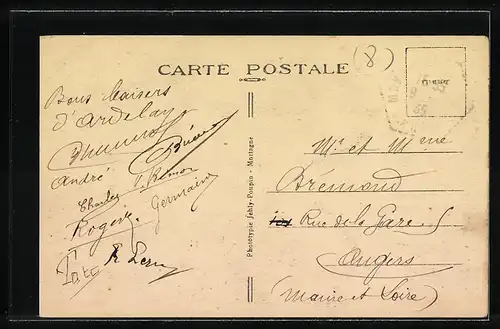 (8)
CARTE POSTALE
Bons baisers
d'ardelay
André
Charles
Germaine
Roger
Toto
Phototypie Jehly-Poupin - Mortagne
Mr et Mme
Brémond
Rue de la Gare
Angers
(Maine et Loire)